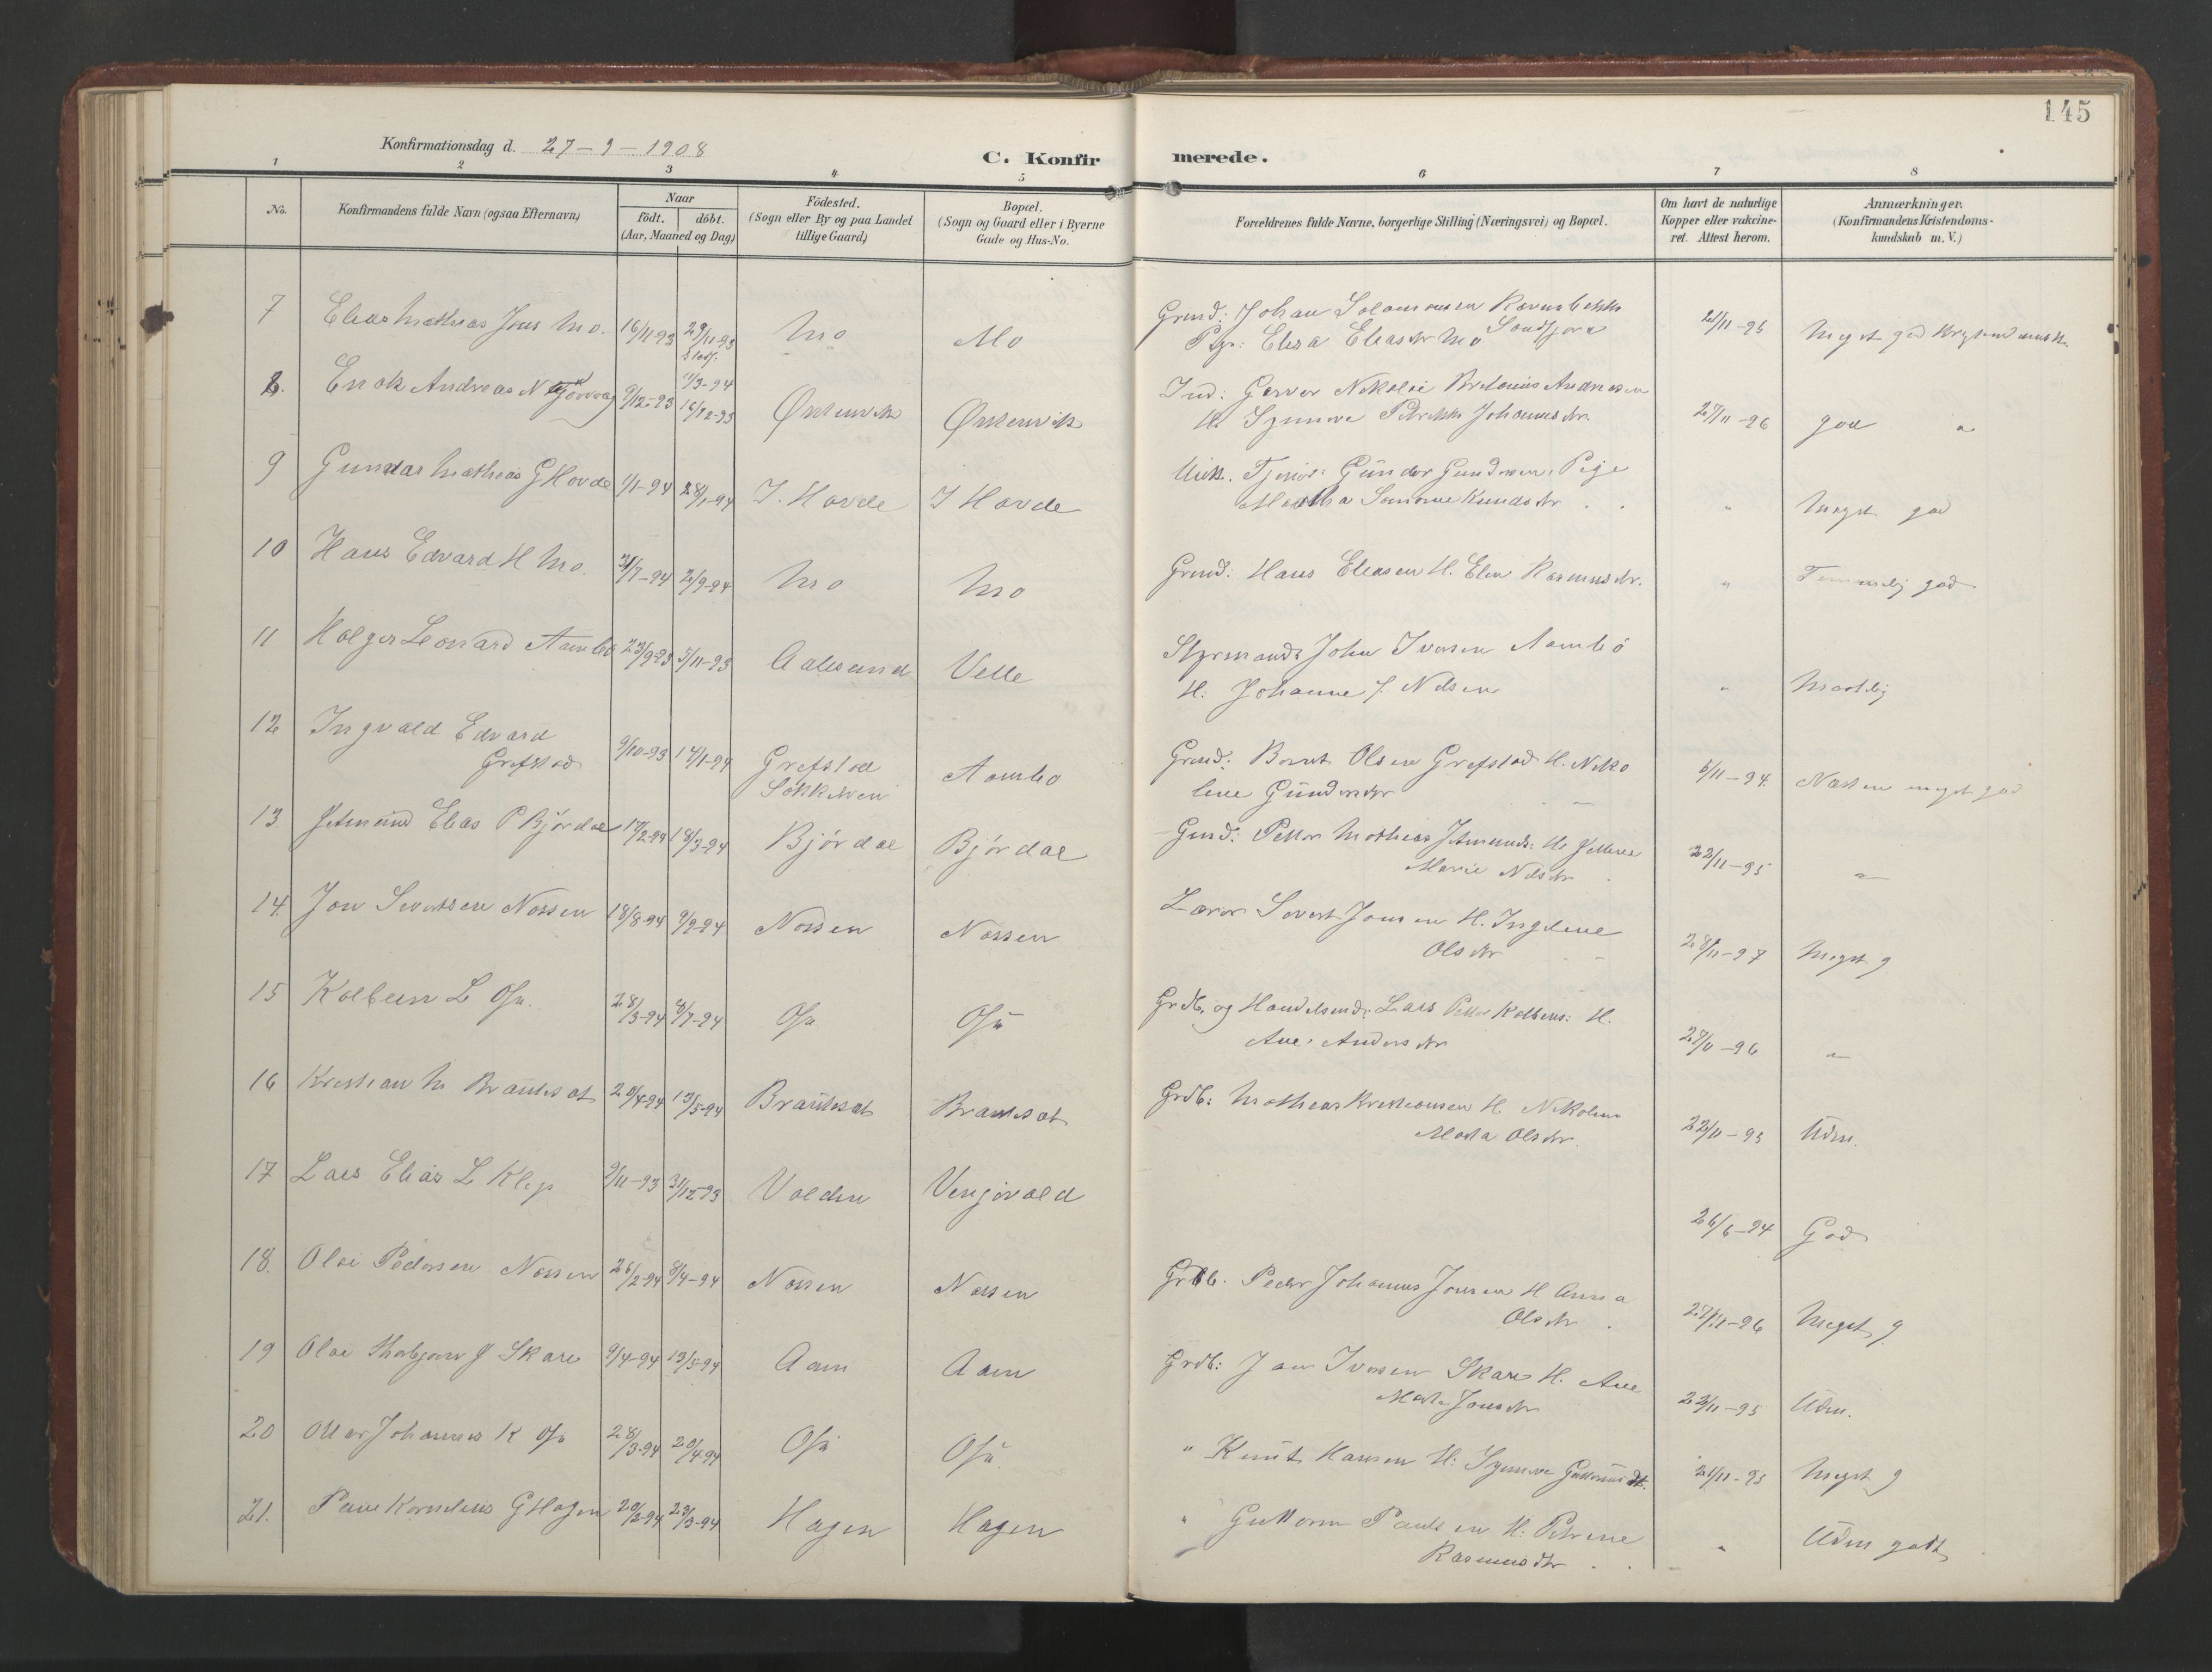 145
Konfirmationsdag d. 27-9-1908
C. Konfirmerede.
1 2 3 4 5 6 7 8
No.
Konfirmandens fulde Navn (ogsaa Efternavn)
Naar
födt. döbt.
(Aar, Maaned og Dag)
Födested.
(Sogn eller By og paa Landet
tillige Gaard)
Bopæl.
(Sogn og Gaard eller i Byerne
Gade og Hus-No.
Forældrenes fulde Navne, borgerlige Stilling (Næringsvei) og Bopæl.
Om havt de naturlige
Kopper eller vakcine-
ret. Attest herom.
Anmærkninger.
(Konfirmandens Kristendoms-
kundskab m. V.)
7 Elias Mathias Jons Mo. 16/11-93 29/11-93 Mo Mo Grmd: Johan Solomonsen
Pige: Elesa Eliasdtr Mo 21/11-95 Meget god
stadf. 11/3-94
8. Enok Andreas N 9/12-93 16/12-93 Ørstenvik Ørstenvik Ind: Garver Nikolai Andreasen
H. Synnøve Petrikke Johannesdtr. 27/11-96 god "
9 Gunder Mathias G Hovde 1/1-94 28/1-94 I. Hovde I Hovde Uekt. Tjener: Gunder Gundersen Pige
Martha Knudsdtr " Meget god
10 Hans Edvard H Mo. 31/7-94 2/9-94 Mo Mo Grmd: Hans Eliasen H. Elen Rasmusdtr. " Temmelig god
11 Holger Leonard Aambö 23/9-93 5/11-93 Aalesund Velle Styrmand: John Iversen Aambö
H. Johanne J. Nilsen " Maadelig
12 Ingvald Edvard
Grefstad 9/10-93 14/1-94 Grefstad
Sökkelven Aambö Grmd: Bernt Olsen Grefstad H. Niko
line Gündersdtr 6/11-94 Næsten meget god
13. Jetmund Elias P Björdal 17/2-94 18/3-94 Björdal Björdal Grmd: Petter Mathias Jetmunds: H.
Marie Nilsdtr 22/11-95 "
14. Jon Severtsen Nossen 18/8-94 9/9-94 Nossen Nossen Lærer Severt Jonsen H. Ingeline
Olsdtr 28/11-97 Meget g
15 Kolbein L Osa. 28/3-94 8/7-94 Osa Osa Grdb. og Handelsmd: Lars Petter Kolbens: H.
Ane Andersdtr 27/11-96 "
16 Kristian M Brautesat 20/4-94 13/5-94 Brautesat Brautesat Grdb: Mathias Kristiansen H. Nikoline
Marta Olsdtr. 22/11-95 Udm.
17 Lars Elias L Klep 9/11-93 31/12-93 Volden Venjovald 26/6-94 God
18. Olai Pedersen Nossen 26/2-94 8/4-94 Nossen Nossen Grdb. Peder Johannes Jonsen H Anna
Olsdtr 27/11-96 Meget g
19 Olai Thorbjørn J Skare 9/4-94 13/5-94 Aam Aam Grdb: Jon Iversen Skare H. Ane
Marta Jonsdtr 22/11-95 Udm.
20 Ottar Johannes K Osa 28/3-94 20/4-94 Osa Osa " Knut Hansen H: Synnøve Guttormsdt. 21/11-95 Meget g
21. Paul Kornelius G Hagen 20/2-94 23/3-94 Hagen Hagen " Guttorm Paulsen H: Petrine
Rasmusdtr " Udm godt